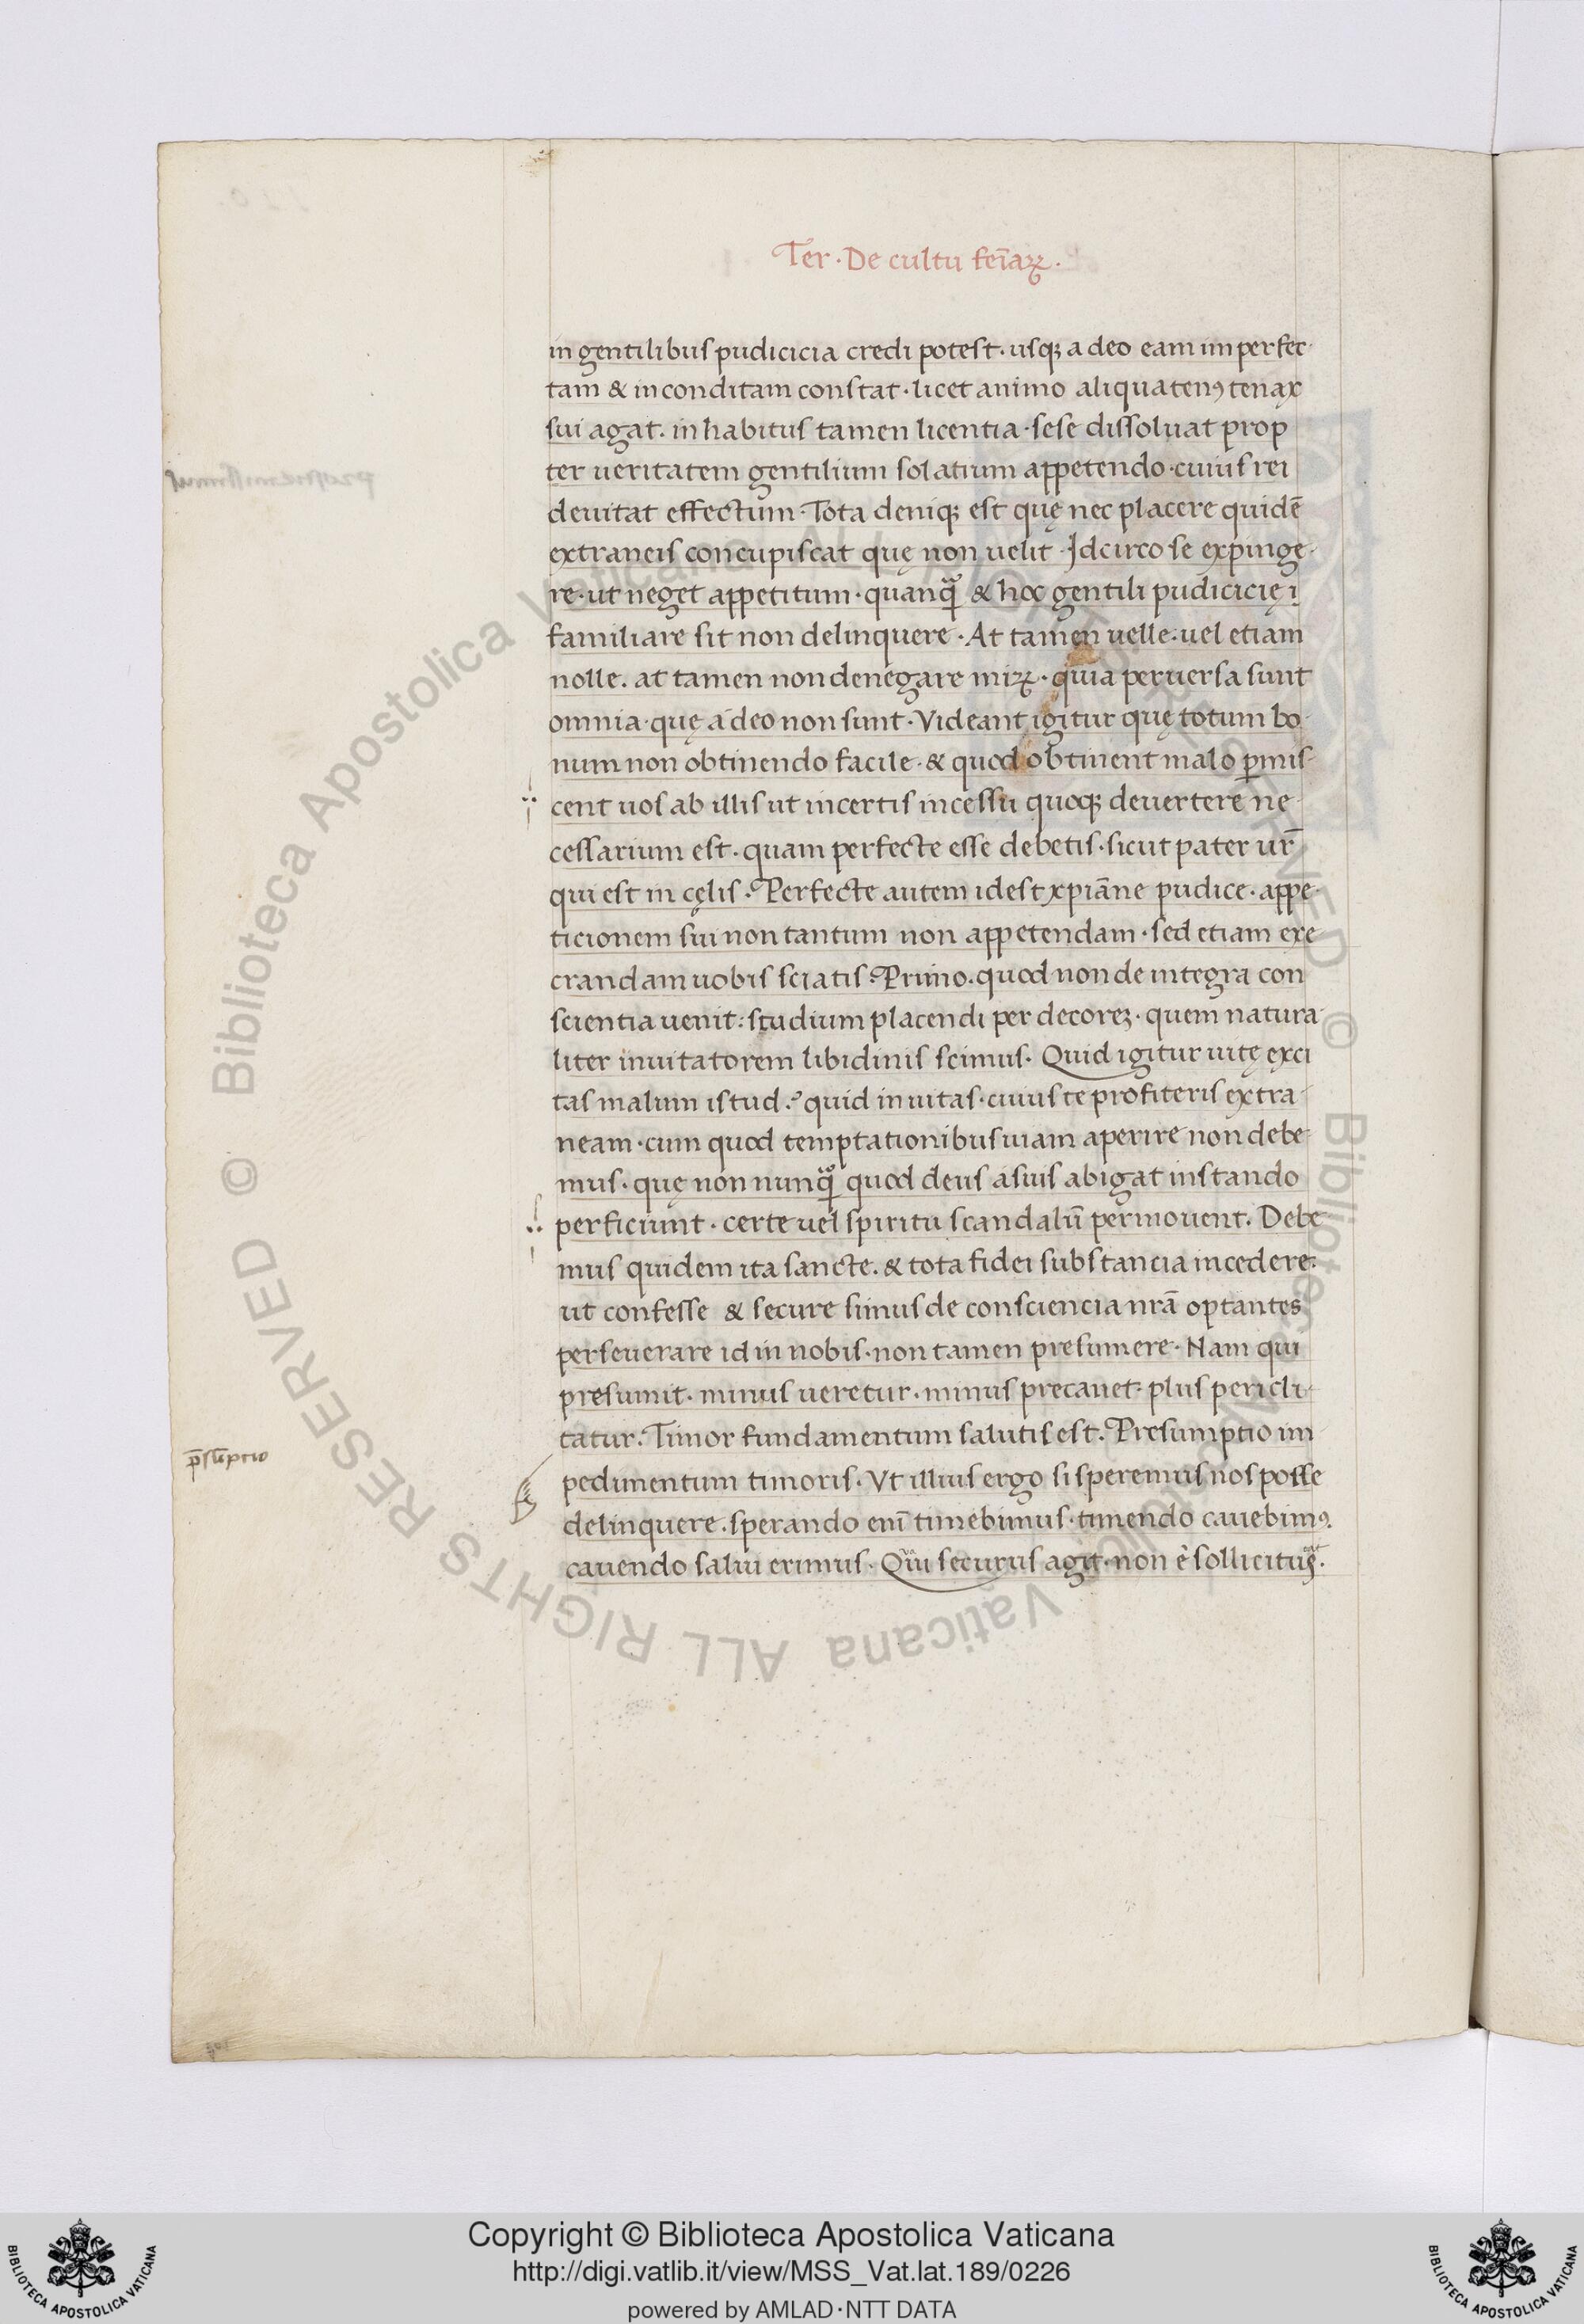 Ter · De cultu feīaꝝ ·
in gentilibus pudicicia credi potest · usqꝫ adeo eam imperfec-
tam & inconditam constat · licet animo aliquatenꝰ tenax
sui agat. in habitus tamen licentia · sese dissoluat prop
ter ueritatem gentilium solatium appetendo · cuius rei
deuitat effectum · Tota deniqꝫ est quę nec placere quidē
extraneis concupiscat quę non uelit · Idcirco se expinge-
re · ut neget appetitum · quanqͣꝫ & hoc gentili pudicicię ī
familiare sit non delinquere · At tamen uelle · uel etiam
nolle. at tamen non denegare miꝝ · quia peruersa sunt
omnia · quę a deo non sunt · Videant igitur quę totum bo-
num non obtinendo facile · & quod obtinent malo ꝑmis-
cent uos ab illis ut in certis incessu quoqꝫ deuertere ne-
cessarium est · quam perfecte esse debetis · sicut pater ur̄
qui est in cęlis · Perfecte autem idest xp̄iane pudice · appe-
ticionem sui non tantum non appetendam · sed etiam exe
crandam uobis sciatis · Primo · quod non de integra con
scientia uenit: studium placendi per decoreꝫ · quem natura-
liter inuitatorem libidinis scimus. Quid igitur uitę exci
tas malum istud.? quid inuitas · cuius te profiteris extra-
neam · cum quod temptationibus uiam aperire non debe-
mus · quę non nunqͣꝫ quod deus a suis abigat instando
perficiunt · certe uel spiritu scandalū permouent. Debe-
mus quidem ita sancte. & tota fidei substancia incedere:
ut confesse & secure simus de consciencia nr̄a optantes
perseuerare id in nobis · non tamen presumere · Nam qui
presumit · minus ueretur · minus precauet · plus pericli-
tatur. Timor fundamentum salutis est. Presumptio im
p̄sūptio
pedimentum timoris. Vt illius ergo si speremus nos posse
delinquere. sperando enī timebimus · timendo cauebimꝰ.
cauendo salui erimus. Qui securus agit · non ē sollicitus.
Copyright © Biblioteca Apostolica Vaticana
http://digi.vatlib.it/view/MSS_Vat.lat.189/0226
powered by AMLAD·NTT DATA
BIBLIOTECA APOSTOLICA VATICANA
BIBLIOTECA APOSTOLICA VATICANA
© Biblioteca Apostolica Vaticana ALL RIGHTS RESERVED © Biblioteca Apostolica Vaticana ALL RIGHTS RESERVED